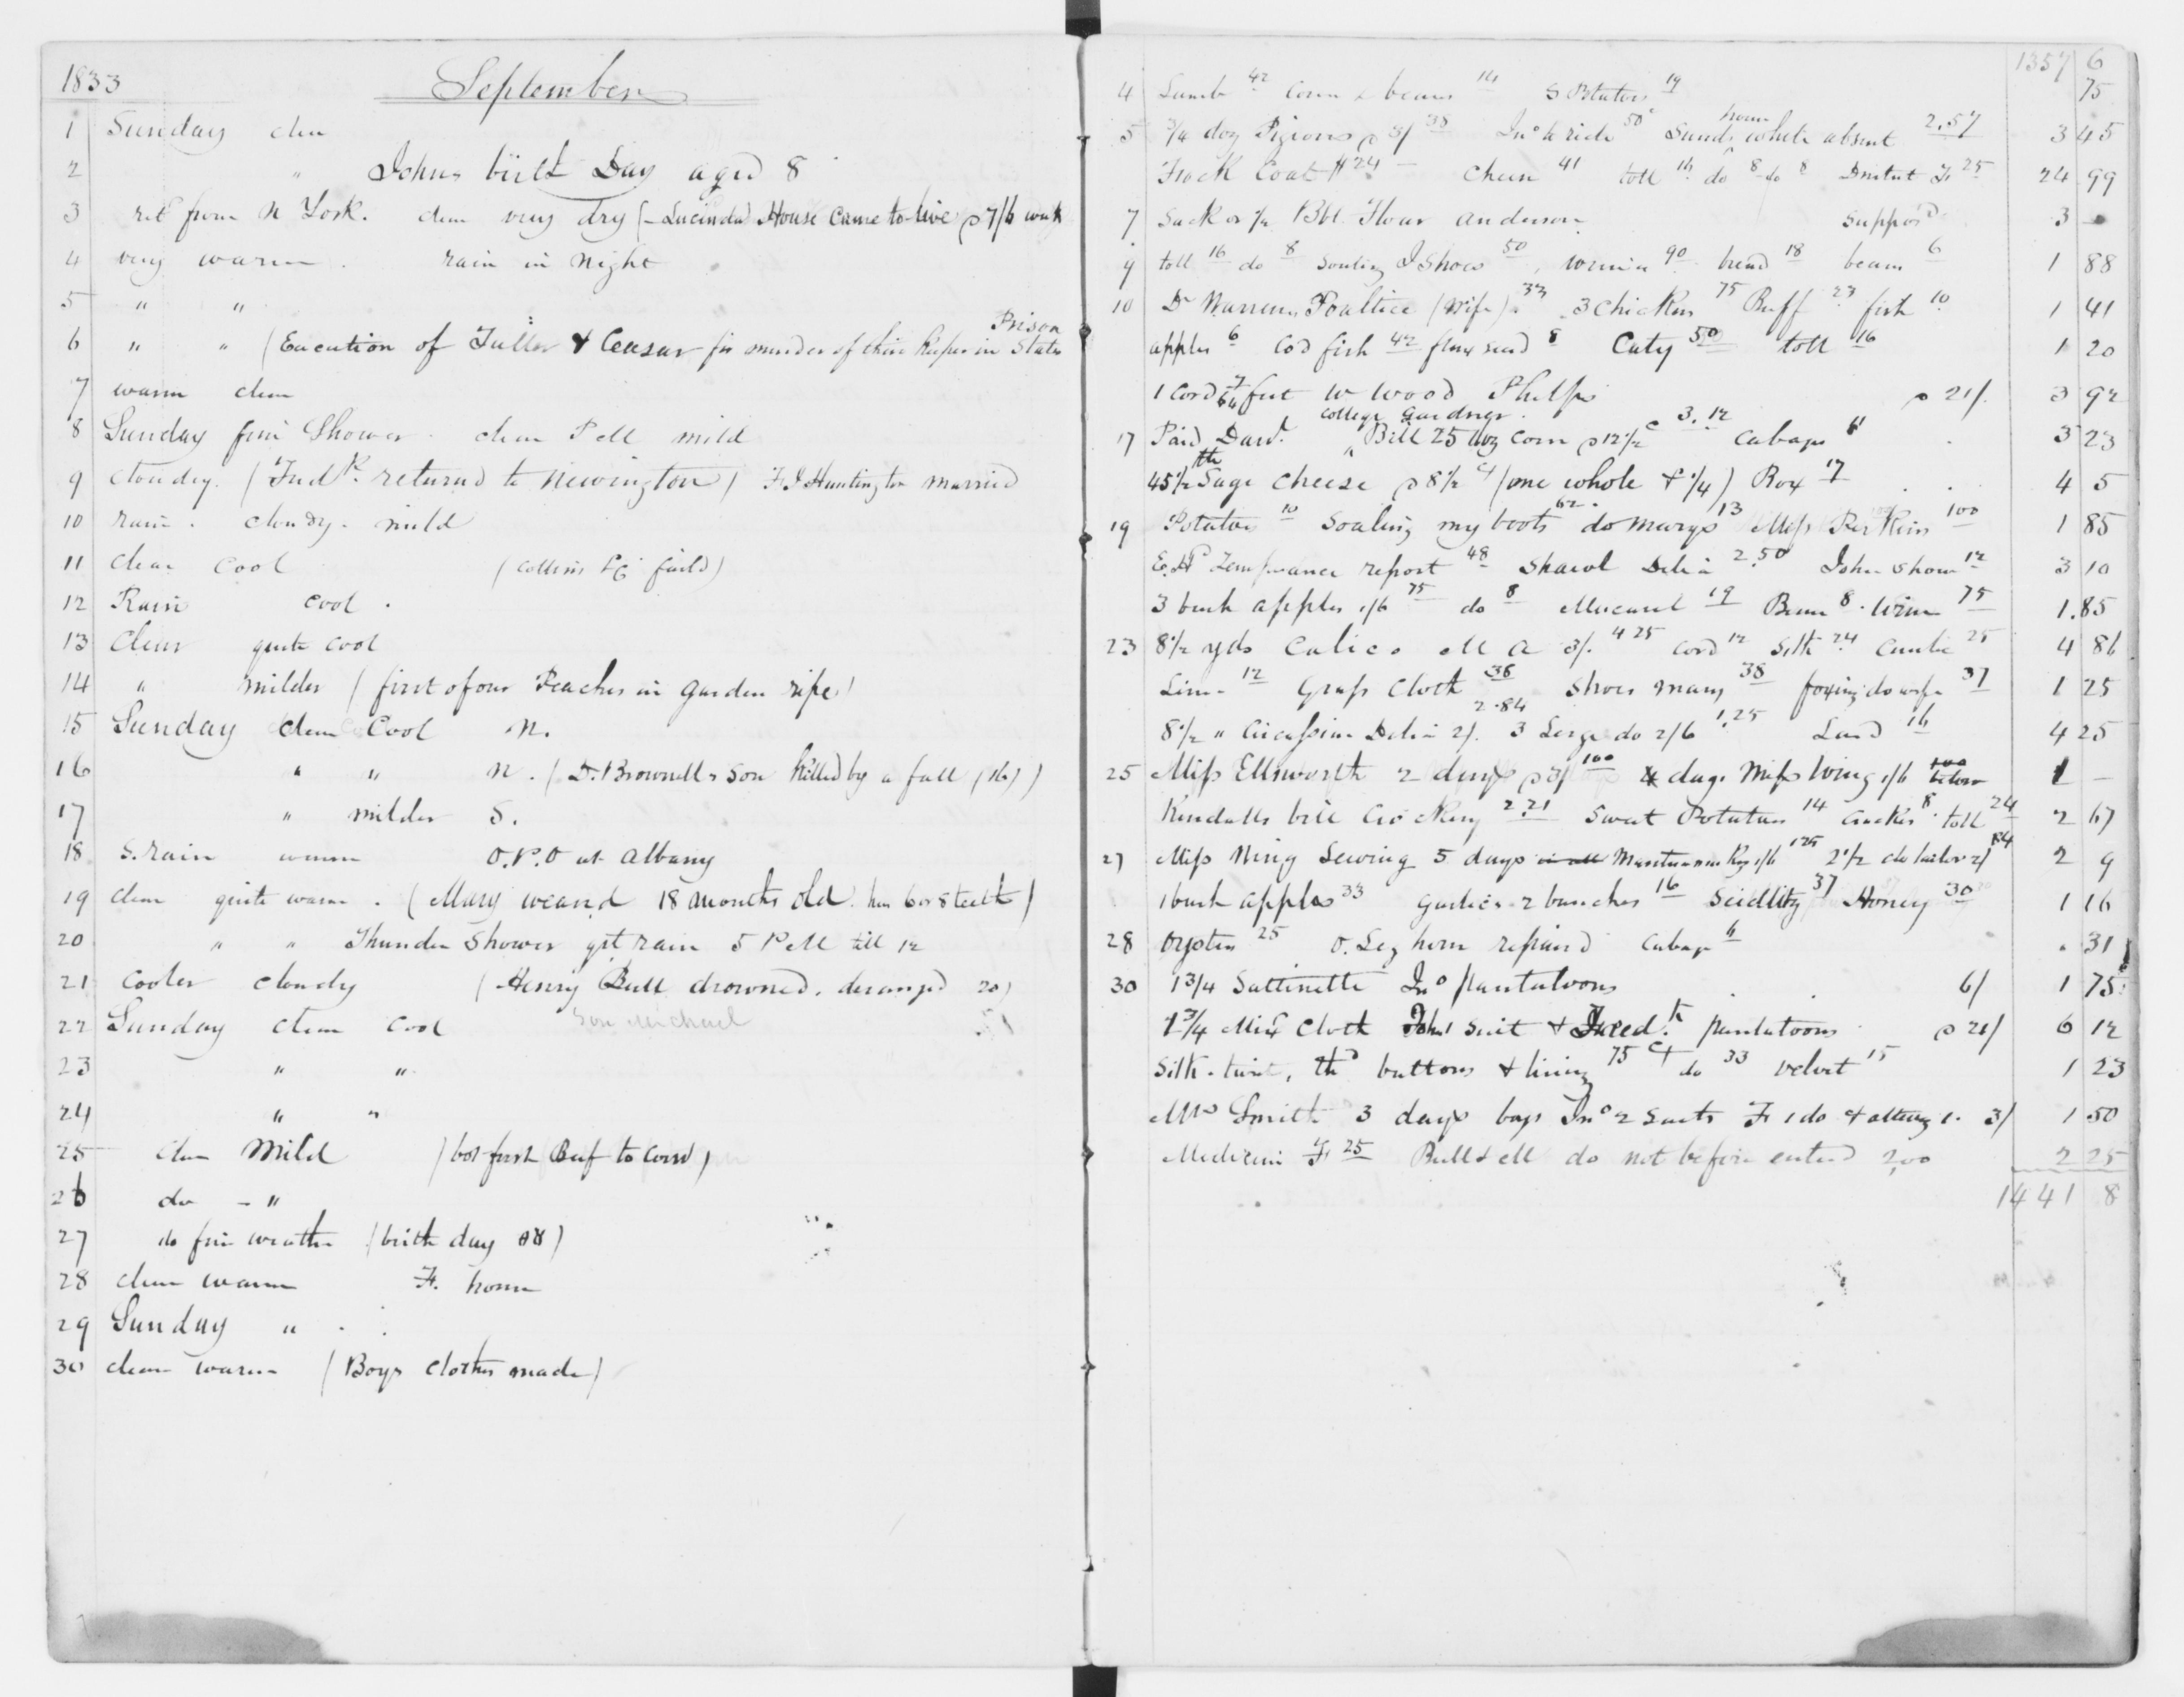 1833 September
1 Sunday clear
2 " Johns birth Day aged 8
3 ret from N York. clear very dry (Lucinda House came to live @ 7/6 week
4 very warm. rain in night
5 " "
Prison
6 " " (Execution of Fuller & Ceasar for murder of their Keeper in States
7 warm clear
8 Sunday fine Shower clear P M mild
9 cloudy. (Fredk. returned to Newington) F J Huntington married
10 rain. cloudy. mild
11 clear cool (Collins & Co faild)
12 Rain cool.
13 clear quite cool
14 " milder (first of our Peaches in garden ripe)
15 Sunday clear Cool N.
16 " " N. (D. Brownells Son killed by a fall (16))
17 " milder S.
18 S. rain warm at Albany
19 clear quite warm. (Mary weand 18 months old. has 6 or 8 teeth)
20 " " Thunder Shower grt rain 5 PM till 12
21 cooler cloudy (Henry Bull drowned. deranged 20)
22 Sunday clear cool Son Michael
23 " "
24 " "
25 clear Mild (bot first Beef to Corn)
26 do - "
27 do fine weather (birth day)
28 clear warm F. home
29 Sunday "
30 clear warm (Boys clothes made)
1357 6
4 Lamb 42 Corn & beans 14 S Potatoes 19 75
home
5 3/4 doz Pigeons @ 3/ 38 Jno to ride 50c Sunds while absent 2.57 3 45
Frock Coat $24 - Cheese 41 toll 16 do 8 do 8 Fr 25 24 99
7 Sack or 1/2 Bbl Flour Anderson suppos'd 3 -
9 toll 16 do 8 Soaling J Shoes 50, 90 bread 18 beans 6 1 88
10 Dr Warrens Poultice (Wife) 33 3 Chickens 75 Beef 23 fish 10 1 41
apples 6 Cod fish 42 flax seed 8 Caty 50 toll 16 1 20
1 Cord 7/64 feet W Wood Phelps @ 21/. 3 92
College Gardner
17 Paid Davd. Bill 25 doz corn @ 12 1/2 c 3.12 Cabage 11 3 23
45 1/2 lb Sage Cheese @ 8 1/2 ct (one whole & 1/4) Box 17 4 5
19 Potatoes 10 Soaling my boots 62. do Marys 13 Miss Perkins 100 1 85
Temperance report 48 Shawl Delia 2.50 John Shoes 12 3 10
3 bush apples 1/6 75 do 8 Mucaurel 19 Beans 8. Wine 75 1.85
23 8 1/2 yds Calico M A 3/. 4 25 Cord 12 Silk 24 25 4 86
12 Grass Cloth 38 Shoes Mary 38 foxing do wife 37 1 25
2.84
8 1/2 " Circassian Delia 2/. 3 Serge do 2/6 1.25 Lard 16 4 25
25 Miss Ellsworth 2 days @ 3/ 100 4 days Miss Wing 1/6 100 below 1 -
Kendalls bill Crockery 2.21 Sweet Potatoes 14 Crackers 8. toll 24 2 67
27 Miss Wing Sewing 5 days in all Mantua making 1/6 125 2 1/2 do tailor 2/ 84 2 9
1 bush apples 33 Garlics 2 bunches 16 Seidlitz 37 Honey 30 1 16
28 Oysters 25 O. Leghorn repaired Cabage 6 . 31
30 1 3/4 Sattinette Jno pantaloons 6/ 1 75
1 3/4 Mixt Cloth John suit & Fredk. pantaloons @ 21/ 6 12
Silk. twist, thd buttons & lining 75 ct do 33 Velvet 15 1 23
Mrs Smith 3 days boys Jno 2 suits Fr 1 do & altering 1. 3/ 1 50
Medicine Fr 25 Bull & M do not before entered 2,00 2 25
1441 8